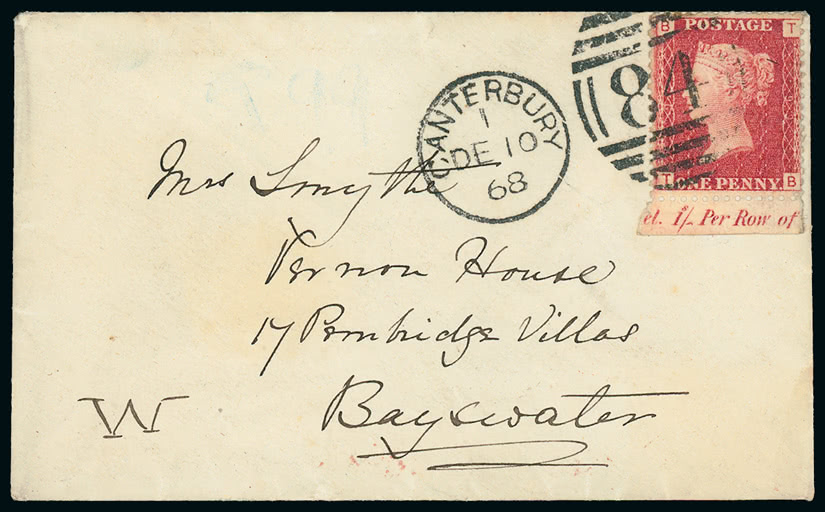 B POSTAGE T
84
CANTERBURY
1
DE 10
68
T ONE PENNY B
el. 1/- Per Row of
Mrs Smythe
Vernon House
17 Pembridge Villas
W
Bayswater